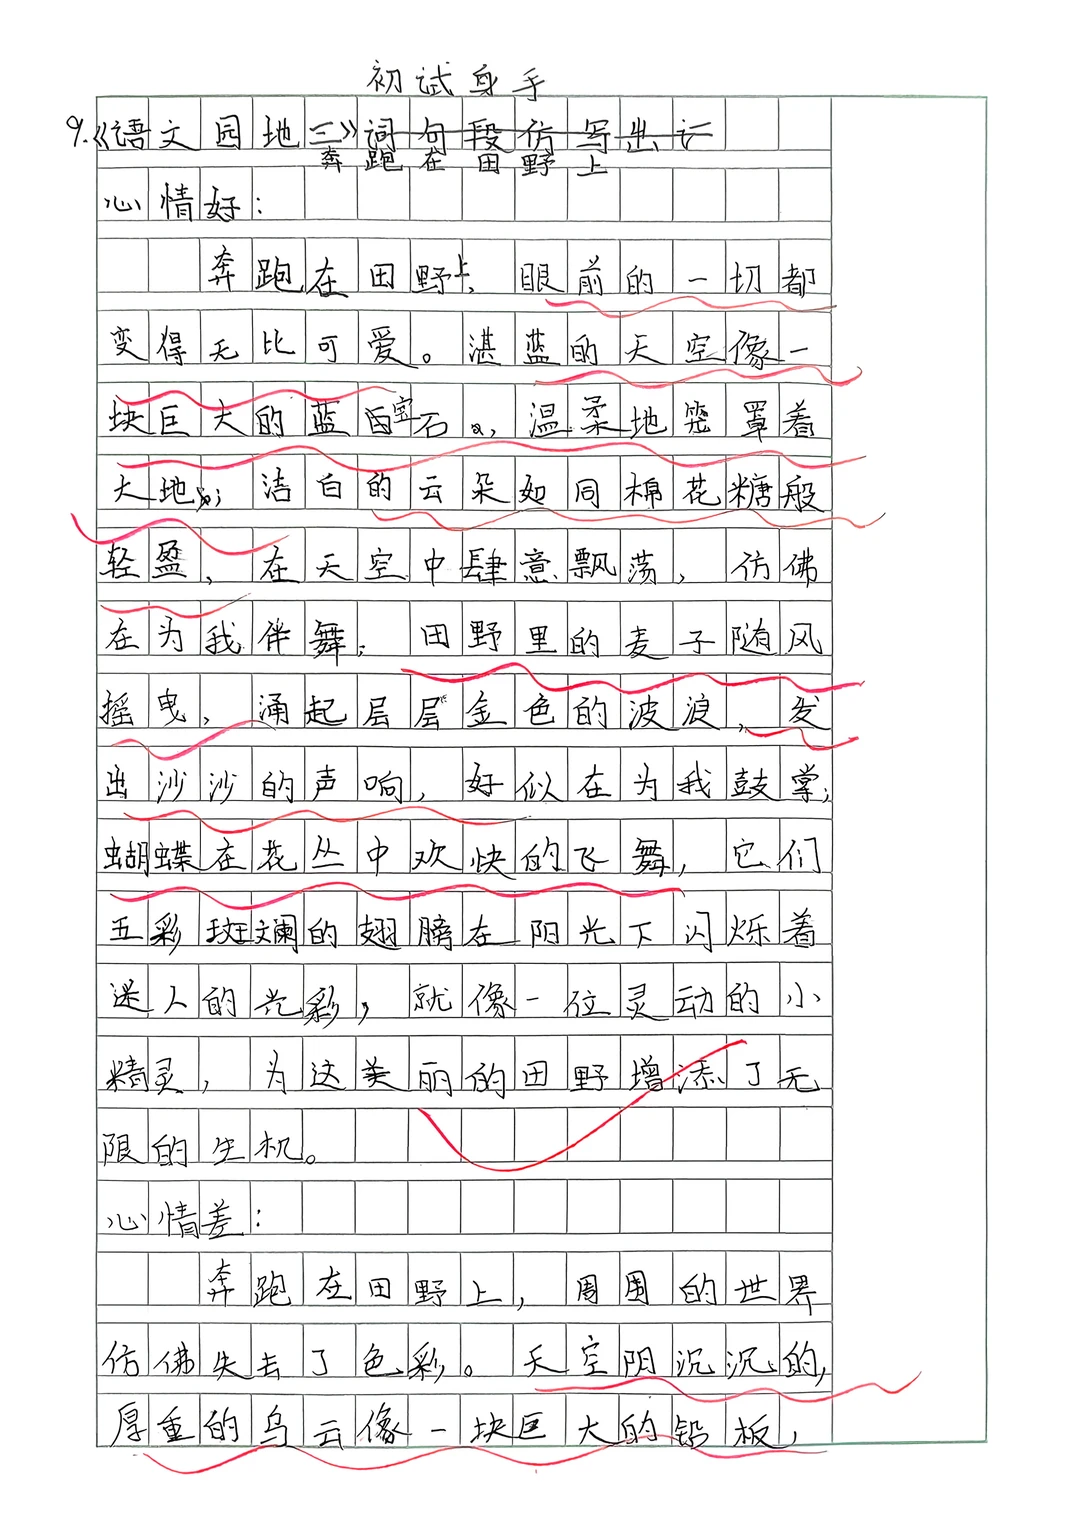 初试身手
9.《语文园地三》词句段仿写出讠
奔跑在田野上
心情好：
奔跑在田野上，眼前的一切都
变得无比可爱。湛蓝的天空像一
块巨大的蓝宝石，温柔地笼罩着
大地；洁白的云朵如同棉花糖般
轻盈，在天空中肆意飘荡，仿佛
在为我伴舞；田野里的麦子随风
摇曳，涌起层层金色的波浪，发
出沙沙的声响，好似在为我鼓掌；
蝴蝶在花丛中欢快的飞舞，它们
五彩斑斓的翅膀在阳光下闪烁着
迷人的光彩，就像一位灵动的小
精灵，为这美丽的田野增添了无
限的生机。
心情差：
奔跑在田野上，周围的世界
仿佛失去了色彩。天空阴沉沉的，
厚重的乌云像一块巨大的铅板，